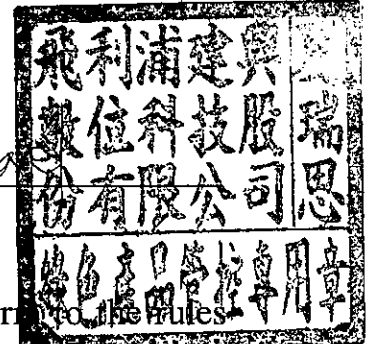 飛利浦建興
數位科技股
份有限公司
瑞思
綠色產品管控專用章
to the rules